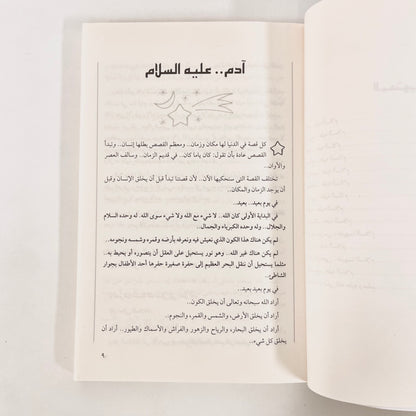 آدم.. عليه السلام
كل قصة في الدنيا لها مكان وزمان.. ومعظم القصص بطلها إنسان.. وتبدأ
القصص عادة بأن تقول: كان ياما كان.. في قديم الزمان.. وسالف العصر
والأوان..
تختلف القصة التي سنحكيها الآن.. لأن قصتنا تبدأ قبل أن يخلق الإنسان وقبل
أن يوجد الزمان والمكان..
في يوم بعيد.. بعيد..
في البداية الأولى كان الله.. لا شيء مع الله ولا شيء سوى الله. له وحده السلام
والجلال.. وله وحده الكبرياء والجمال..
لم يكن هناك هذا الكون الذي نعيش فيه ونعرفه بأرضه وقمره وشمسه ونجومه..
لم يكن هناك غير الله.. وهو نور يستحيل على العقل أن يتصوره أو يحيط به..
مثلما يستحيل أن ننقل البحر العظيم إلى حفرة صغيرة حفرها أحد الأطفال بجوار
الشاطئ..
في يوم بعيد بعيد..
أراد الله سبحانه وتعالى أن يخلق الكون..
أراد أن يخلق الأرض، والشمس والقمر، والنجوم..
أراد أن يخلق البحار، والرياح والزهور والفراش والأسماك والطيور.. أراد أن
يخلق كل شيء..
٩